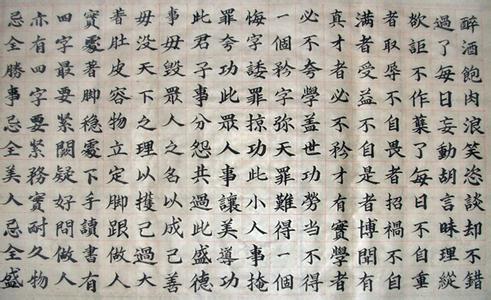 醉酒飽肉浪笑恣談却不錯
過了每日妄動胡言昧理縱
欲詎不作蘖了每日不自重
者取辱不自畏者招禍不自
滿者受益不自是者博聞有
真才者必不矜才有實學者
必不夸學蓋世功勞當不得
一個矜字彌天罪難得一個
悔字諉罪掠功此小人事掩
罪夸功此眾人事讓美導功
此君子事分怨共過此盛德
事毋毀眾人之名以成己善
毋没天下之理以護己過大
著肚皮容物立定脚跟做人
實處著脚穩處下手讀書有
四字最要緊闕疑好問做人
亦有四字要緊務實耐久物
忌全勝事忌全美人忌全盛